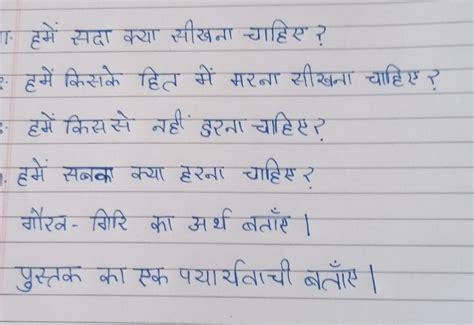 हमें सदा क्या सीखना चाहिए?
हमें किसके हित में मरना सीखना चाहिए?
हमें किससे नहीं डरना चाहिए?
हमें सबका क्या हरना चाहिए?
गौरव - गिरि का अर्थ बताएँ।
पुस्तक का एक पयार्यवाची बताएँ।